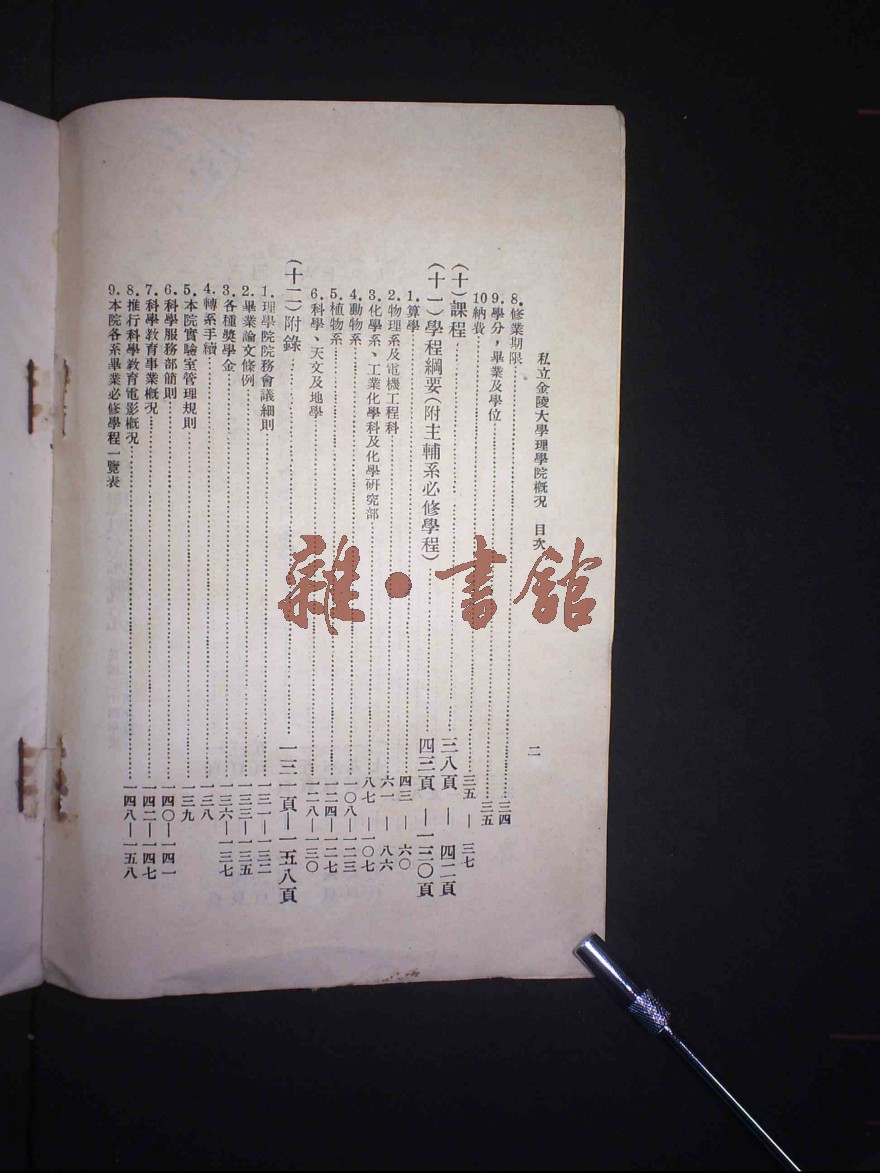 私立金陵大學理學院槪况　目次　二
8．修業期限……三四
9．學分，畢業及學位……三五
10納費……三五—三七
（十）課程……三八頁—四二頁
（十一）學程綱要（附主輔系必修學程）……四三頁—一三〇頁
1．算學……四三—六〇
2．物理系及電機工程科……六一—八六
3．化學系、工業化學科及化學研究部……八七—一〇七
4．動物系……一〇八—一二三
5．植物系……一二四—一二七
6．科學、天文及地學……一二八—一三〇
（十二）附錄……一三一頁—一五八頁
1．理學院院務會議細則……一三一—一三二
2．畢業論文條例……一三三—一三五
3．各種獎學金……一三六—一三七
4．轉系手續……一三八
5．本院實驗室管理規則……一三九
6．科學服務部簡則……一四〇—一四一
7．科學教育事業槪况……一四二—一四七
8．推行科學教育電影槪况……一四八—一五八
9．本院各系畢業必修學程一覽表
雜·書館